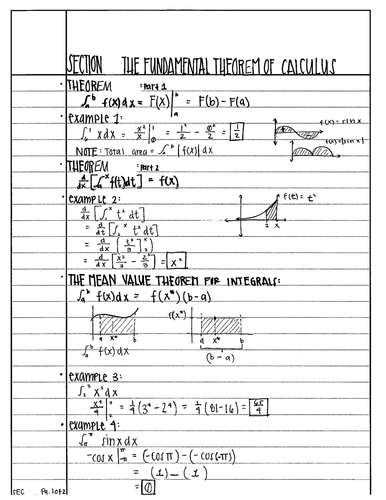 SECTION THE FUNDAMENTAL THEOREM OF CALCULUS
• THEOREM :Part 1
∫ₐᵇ f(x)dx = F(x)|ₐᵇ = F(b) - F(a)
• example 1:
∫₀¹ xdx = x²/2 |₀¹ = 1²/2 - 0²/2 = 1/2
f(x) = sin x
NOTE: Total area = ∫ₐᵇ |f(x)| dx
f(x)=|sin x|
• THEOREM :Part 2
d/dx [∫ₐˣ f(t)dt] = f(x)
• example 2:
d/dx [∫₂ˣ t² dt]
f(t) = t²
2 x
= d/dt ∫₂ˣ t² dt
= d/dx (t³/3)|₂ˣ
= d/dx [x³/3 - 2³/3] = x²
• THE MEAN VALUE THEOREM FOR INTEGRALS:
∫ₐᵇ f(x)dx = f(x*)(b-a)
f(x*)
a x* b a x* b
∫ₐᵇ f(x)dx (b-a)
• example 3:
x⁴/4 |₂³ = 1/4(3⁴ - 2⁴) = 1/4(81-16) = 65/4
• example 4:
sinxdx
-cosx = (-cosπ) - (-cos(-π))
= (1) - (1)
= 0
SEC Pg. 1 of 2